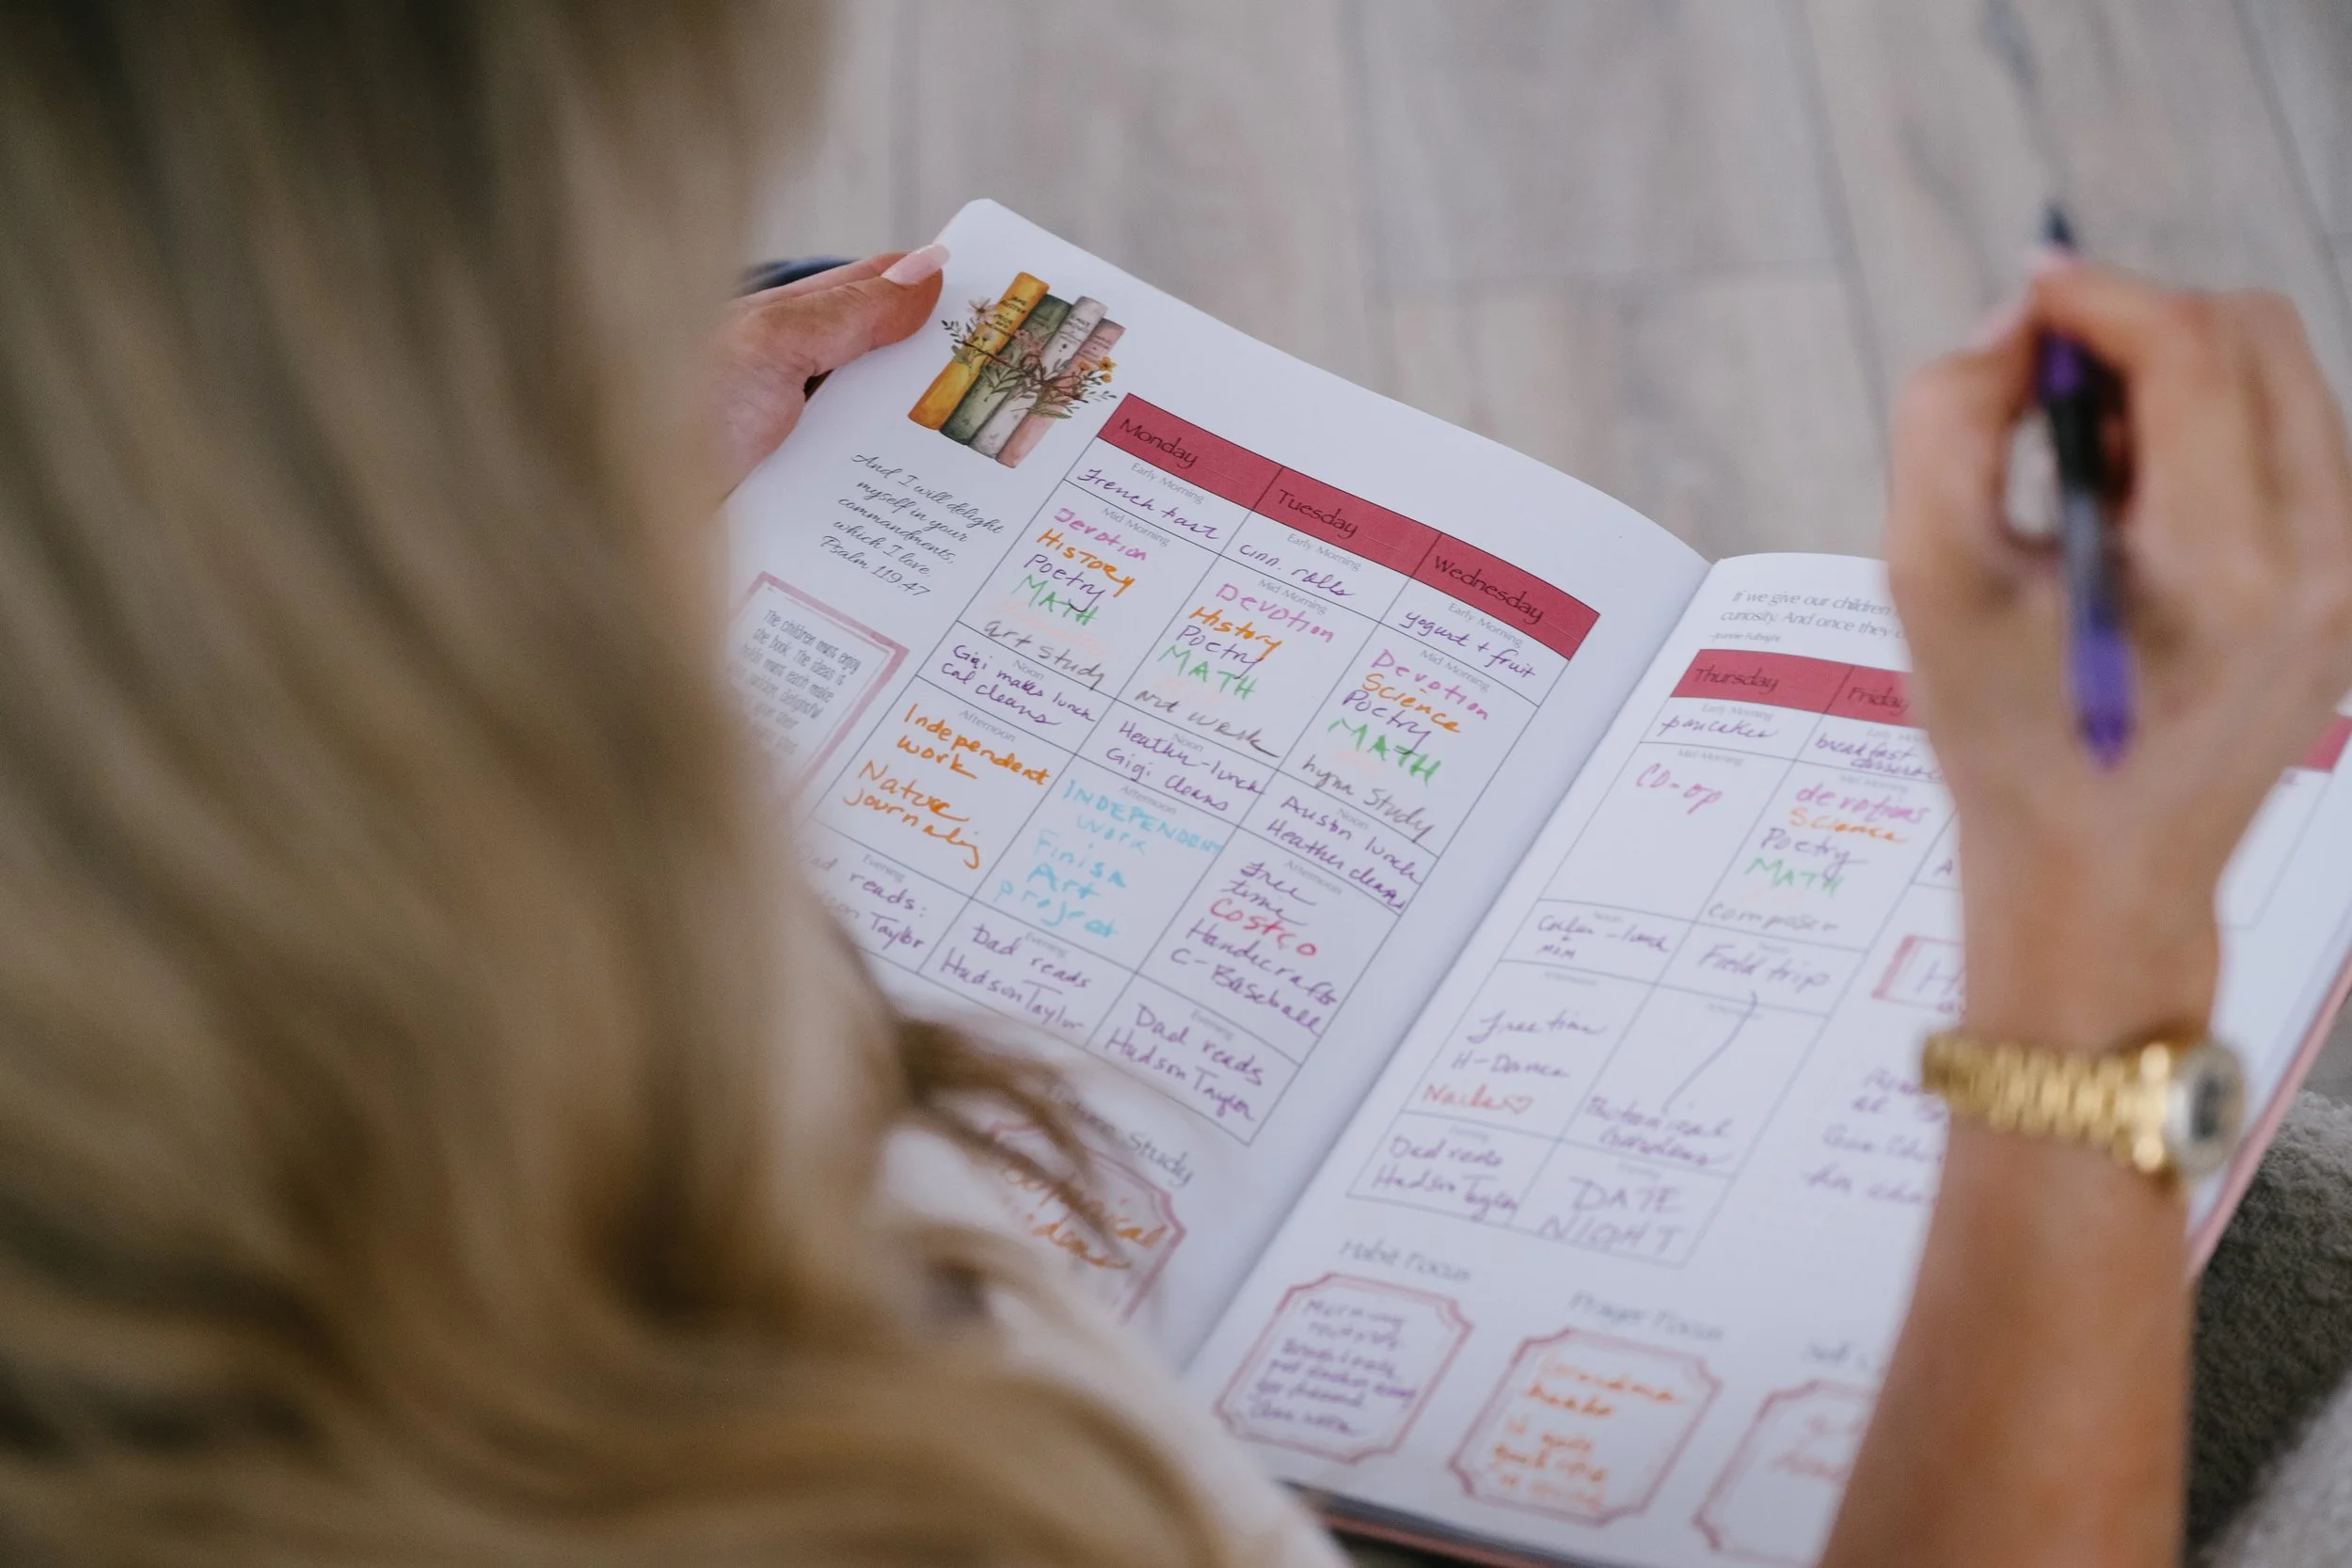 And I will delight
myself in your
commandments,
which I love.
Psalm 119:47
The children must enjoy
the book. The ideas it
holds must each make
Monday
Early Morning
French toast
Mid Morning
Devotion
History
Poetry
MATH
art study
Noon
Gigi makes lunch
Cal cleans
Afternoon
Independent
work
Nature
journaling
Evening
reads:
Taylor
Tuesday
Early Morning
cinn. rolls
Mid Morning
Devotion
History
Poetry
MATH
art work
Noon
Heather-lunch
Gigi cleans
Afternoon
INDEPENDENT
work
Finish
Art
project
Evening
Dad reads
Hudson Taylor
Wednesday
Early Morning
yogurt + fruit
Mid Morning
Devotion
Science
Poetry
MATH
hymn Study
Noon
Austin lunch
Heather cleans
Afternoon
Free
time
Costco
Handicrafts
C-Baseball
Evening
Dad reads
Hudson Taylor
Study
If we give our children
curiosity. And once they
Thursday
Early Morning
pancakes
Mid Morning
CO-op
Noon
lunch
mom
Afternoon
free time
H-Dance
Nails♡
Evening
Dad reads
Hudson Taylor
Friday
breakfast
Mid Morning
devotions
Science
Poetry
MATH
composer
Field trip
Botanical
Gardens
DATE
NIGHT
Habit Focus
Morning
Prayer Focus
Grandma